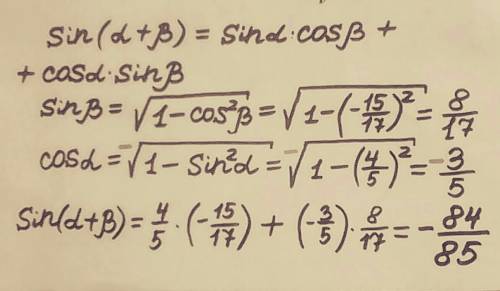 sin(α+β) = sinα·cosβ +
+ cosα·sinβ
sinβ = √(1-cos²β) = √(1-(-15/17)²) = 8/17
cosα = -√(1-sin²α) = -√(1-(4/5)²) = -3/5
sin(α+β) = 4/5·(-15/17) + (-3/5)·8/17 = -84/85